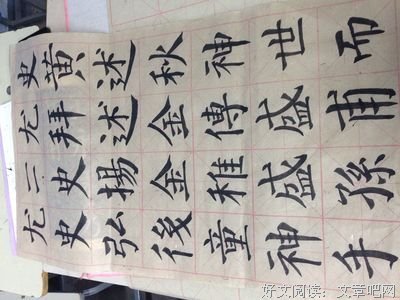 布甫孫手
世盛盛神
神傳稚童
秋金金後
述述揚弘
黄拜史史
史尤二尤
好文阅读：文章吧网